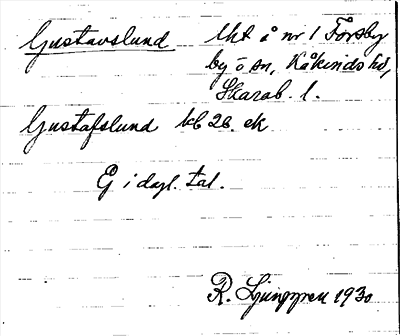 Gustavslund Uht å nr 1 Forsby
by o sn, Kåkinds hd,
Skarab. l.
Gustafslund kb 28. ek
Ej i dagl. tal.
R. Ljunggren 1930